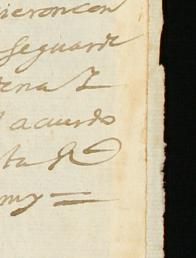 ieron con
seguarde
ena Z
l acuerdo
ta R
my